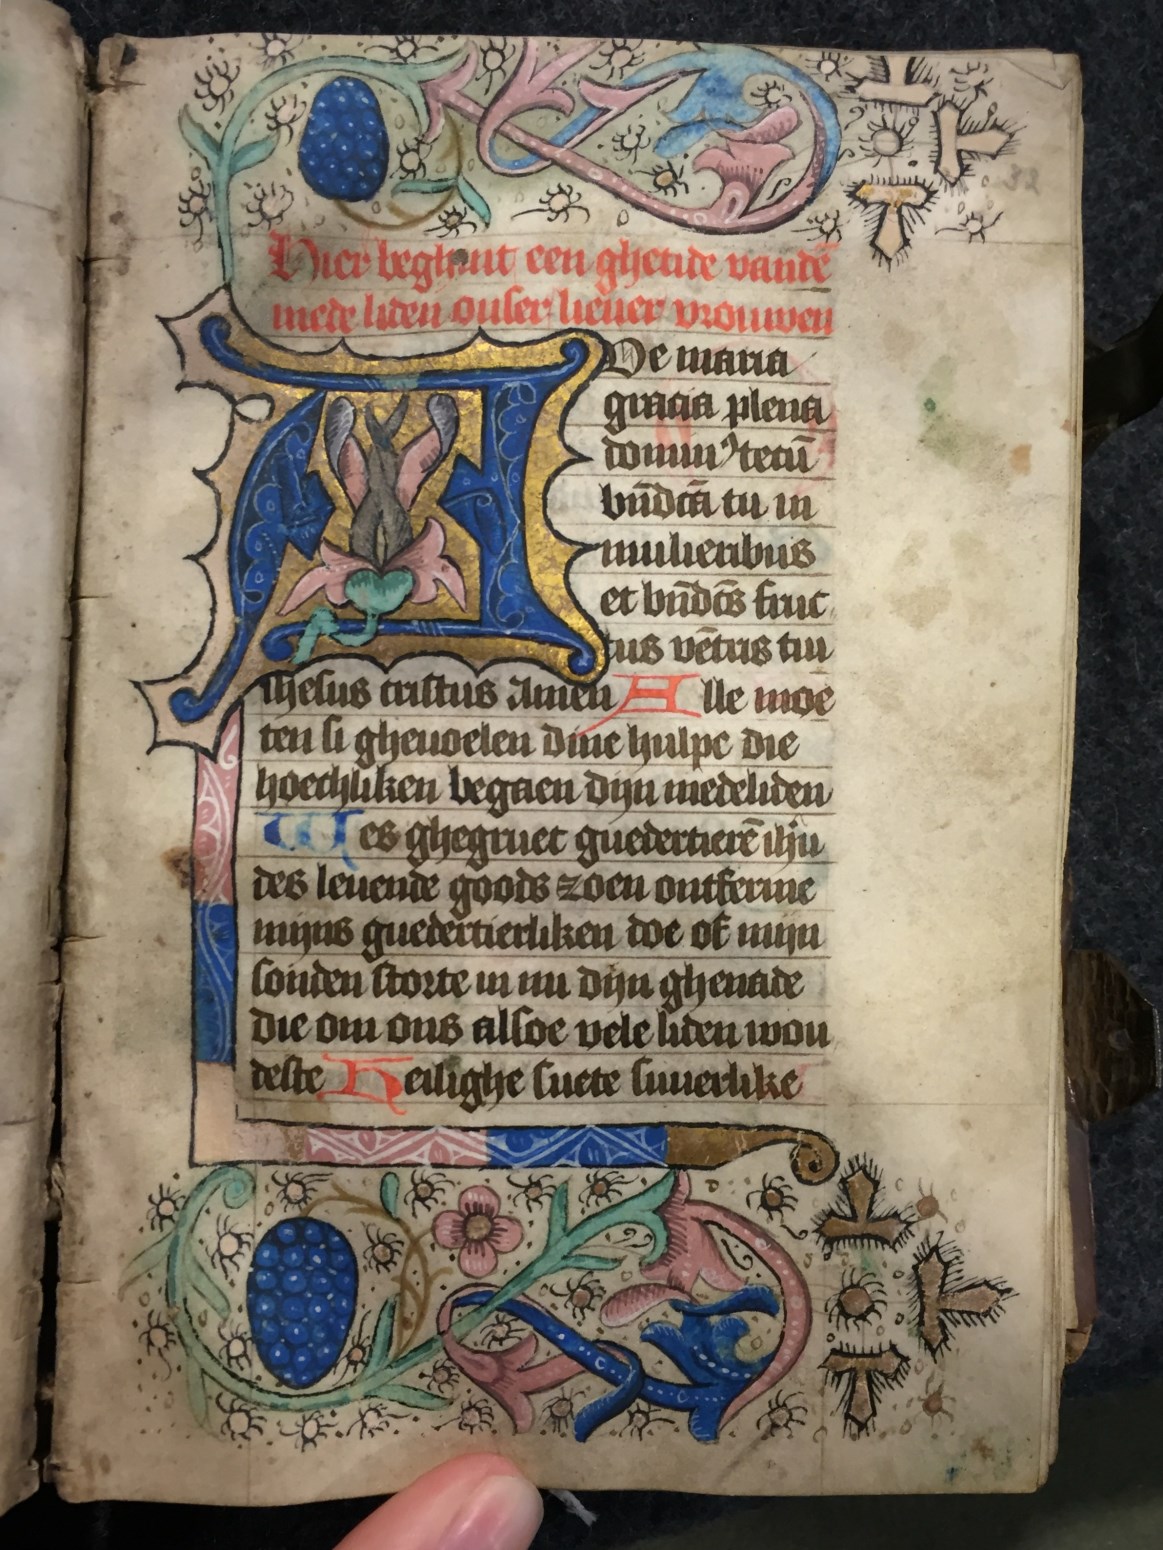 Hier beghint een ghetide vandē
mede liden onser lieuer vrouwen
AVe maria
gracia plena
domin⁹ tecū
bn̄dcā tu in
mulieribus
et bn̄dcs̄ fruc
tus vētris tui
ihesus cristus Amen Alle moe
ten si gheuoelen dine hulpe die
hoechliken begaen dijn medeliden
Wes ghegruet guedertierē ihū
des leuende goods zoen ontferme
mijns guedertierliken doe of mijn
sonden storte in mi dijn ghenade
die om ons alsoe vele liden wou
deste Heilighe suete suuerlike